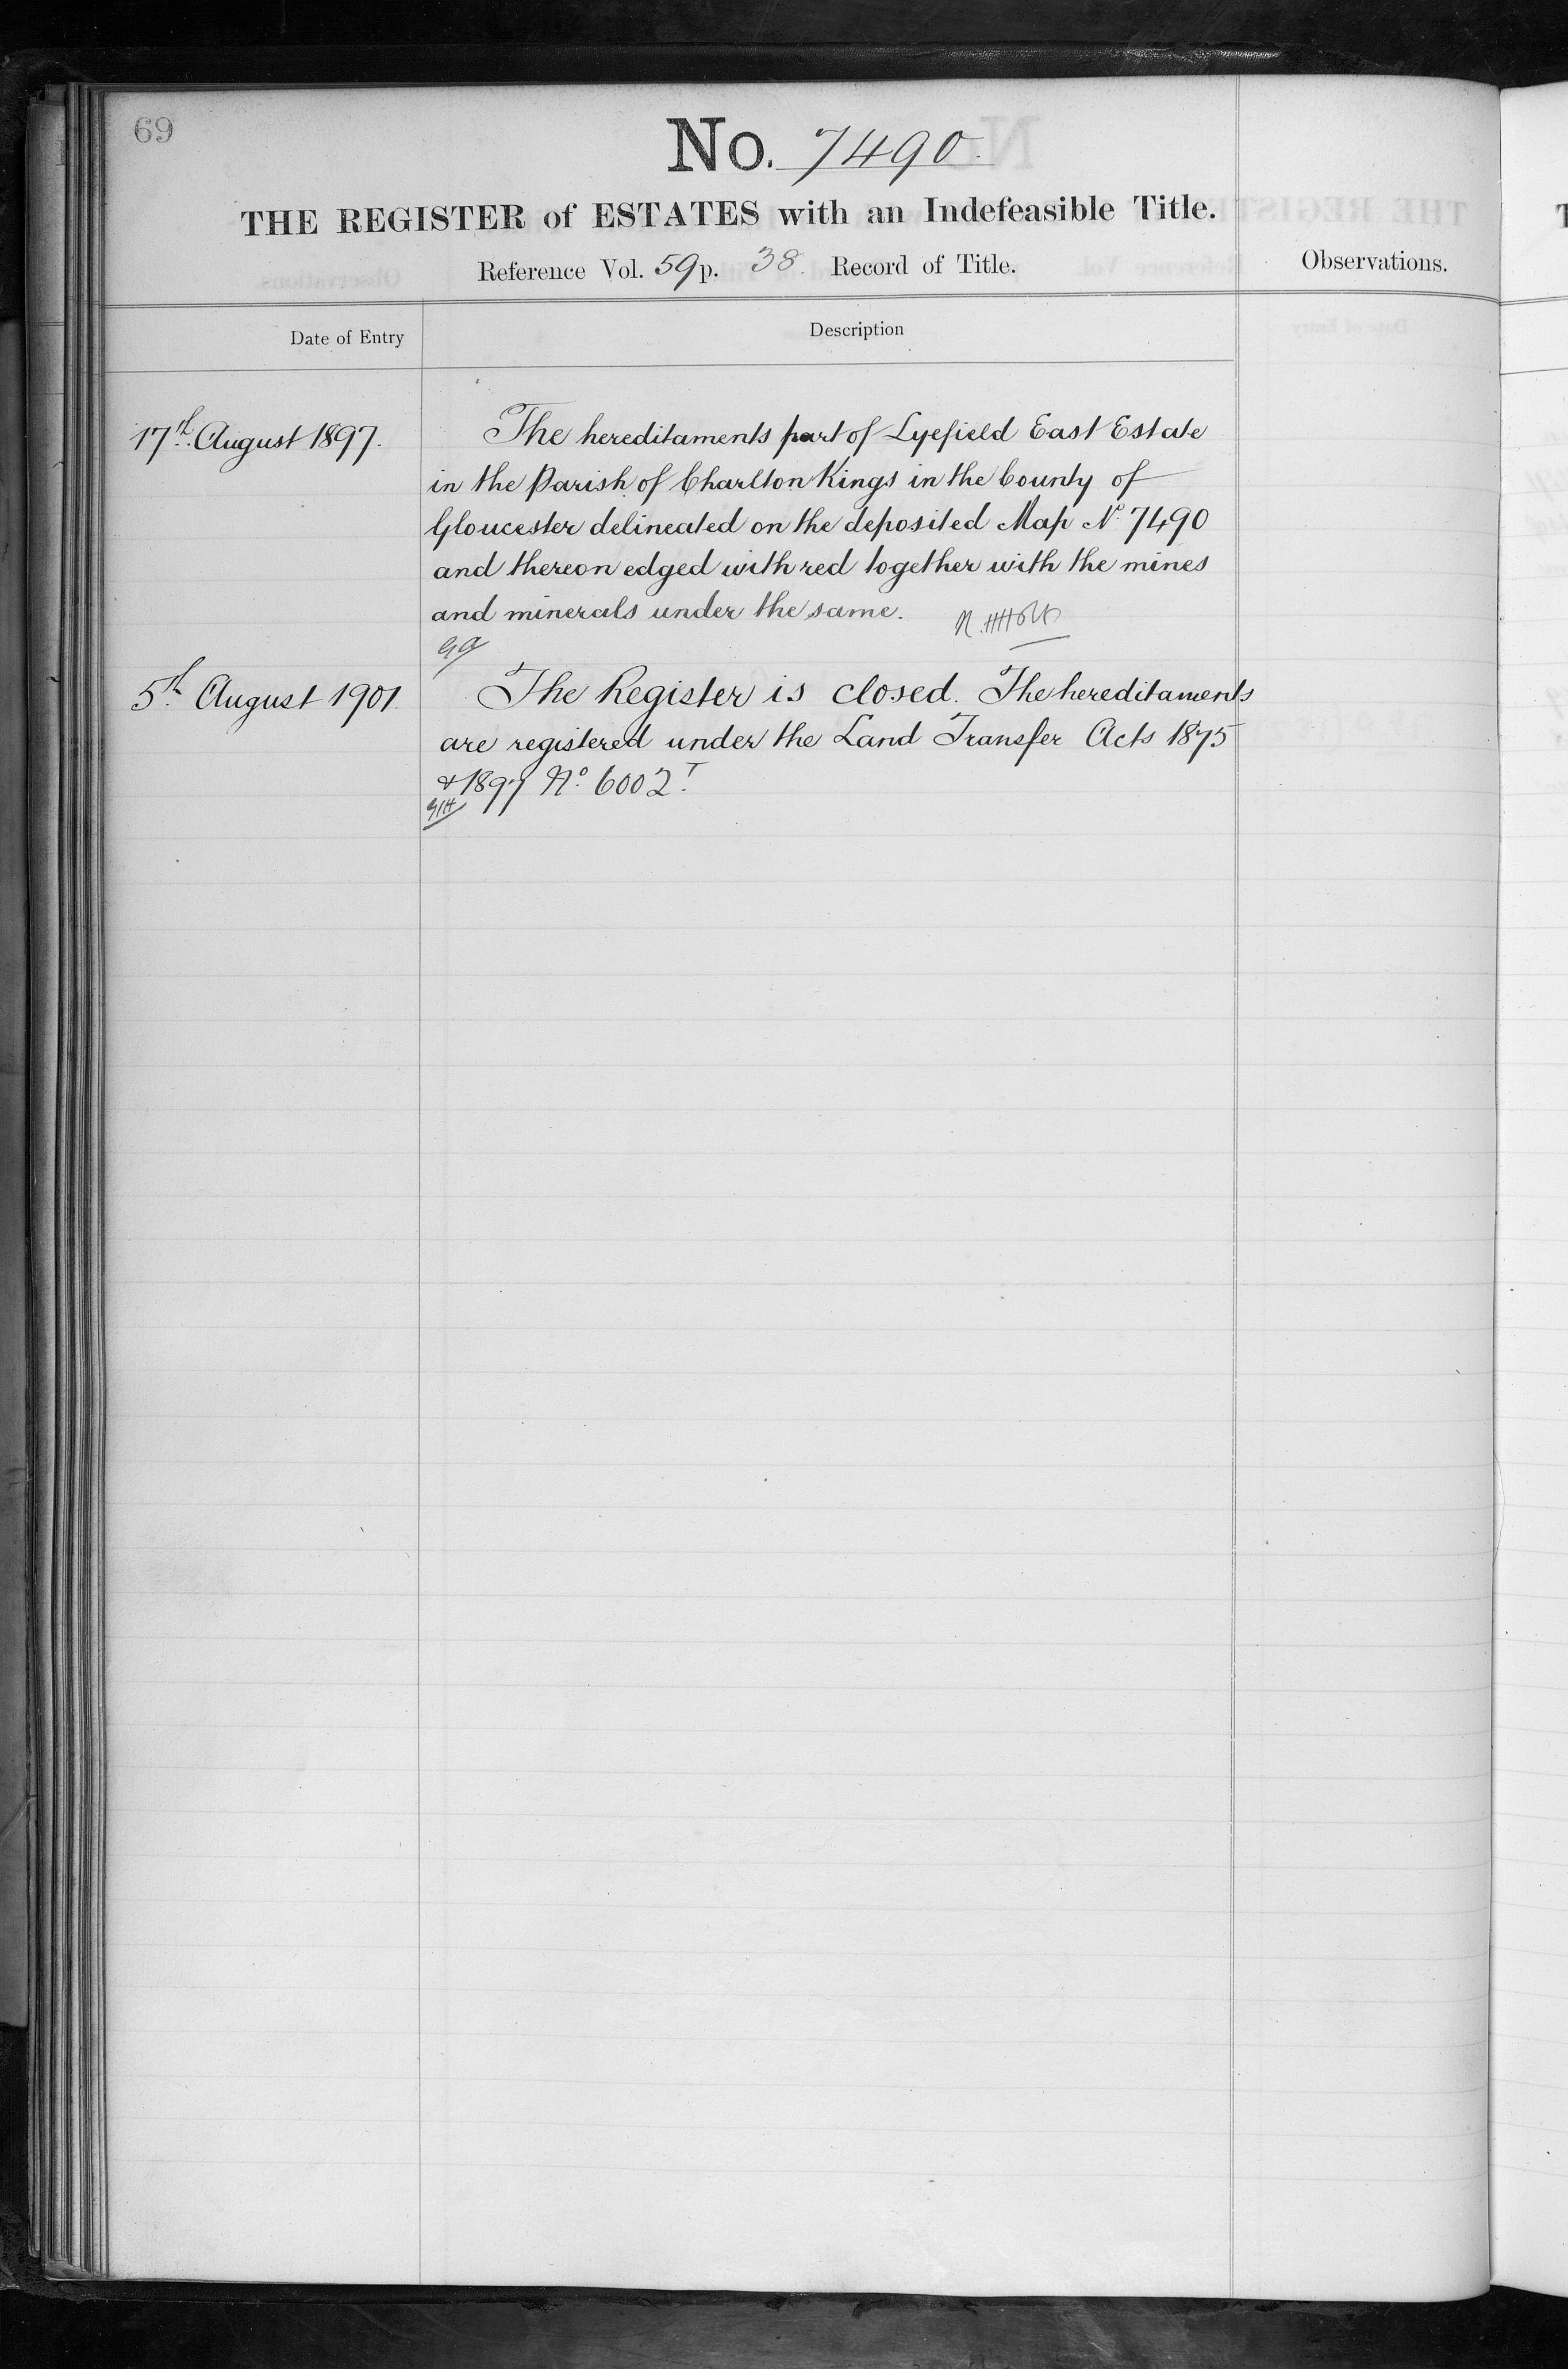 69
No. 7490.
THE REGISTER of ESTATES with an Indefeasible Title.
Reference Vol. 59 p. 38. Record of Title.
Observations.
Date of Entry
Description
17th August 1897.
The hereditaments part of Lyefield East Estate
in the Parish of Charlton Kings in the County of
Gloucester delineated on the deposited Map No 7490
and thereon edged with red together with the mines
and minerals under the same.
5th August 1901.
The Register is closed. The hereditaments
are registered under the Land Transfer Acts 1875
& 1897 No. 6002T.